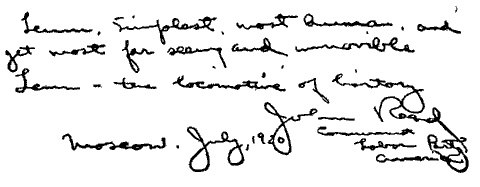 Lenin, simplest, most human, and
yet most far seeing and immovible
Lenin - the locomotive of history
John Reed
Communist
Moscow. July, 1920
Labor Party
America